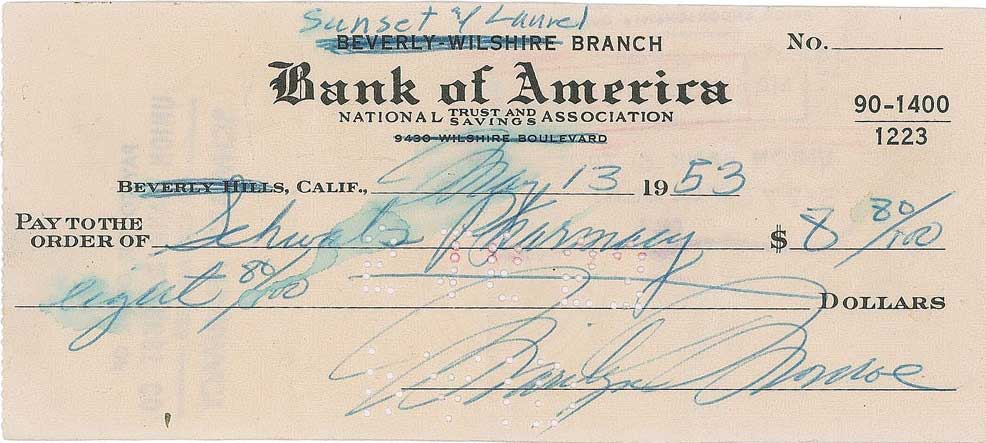 Sunset & Laurel
BEVERLY-WILSHIRE BRANCH No.
Bank of America
NATIONAL TRUST AND SAVINGS ASSOCIATION
90-1400
1223
9430 WILSHIRE BOULEVARD
BEVERLY HILLS, CALIF., May 13 1953
PAY TO THE ORDER OF Schwabs Pharmacy $ 8 80/100
eight 80/100 DOLLARS
Marilyn Monroe